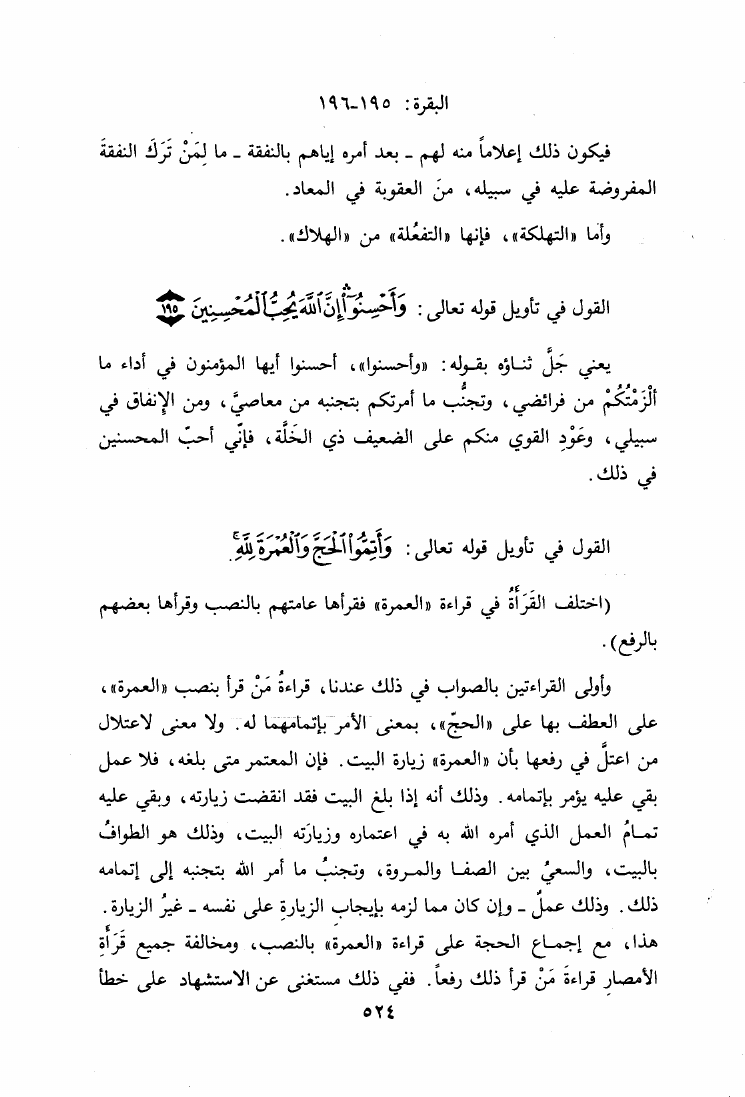 البقرة: ١٩٥-١٩٦
فيكون ذلك إعلاماً منه لهم - بعد أمره إياهم بالنفقة - ما لِمَنْ تَرَكَ النفقةَ
المفروضة عليه في سبيله، منَ العقوبة في المعاد.
وأما «التهلكة»، فإنها «التفعُلة» من «الهلاك».
القول في تأويل قوله تعالى: وَأَحْسِنُوٓا۟ إِنَّ ٱللَّهَ يُحِبُّ ٱلْمُحْسِنِينَ ١٩٥
يعني جَلَّ ثناؤه بقوله: «وأحسنوا»، أحسنوا أيها المؤمنون في أداء ما
ألْزَمْتُكُمْ من فرائضي، وتجنُّب ما أمرتكم بتجنبه من معاصيَّ، ومن الإنفاق في
سبيلي، وعَوْدِ القوي منكم على الضعيف ذي الخَلَّة، فإنّي أحبّ المحسنين
في ذلك.
القول في تأويل قوله تعالى: وَأَتِمُّوا۟ ٱلْحَجَّ وَٱلْعُمْرَةَ لِلَّهِ ۚ
(اختلف القَرَأَةُ في قراءة «العمرة» فقرأها عامتهم بالنصب وقرأها بعضهم
بالرفع).
وأولى القراءتين بالصواب في ذلك عندنا، قراءةُ مَنْ قرأ بنصب «العمرة»،
على العطف بها على «الحجّ»، بمعنى الأمر بإتمامهما له. ولا معنى لاعتلال
من اعتلَّ في رفعها بأن «العمرة» زيارة البيت. فإن المعتمر متى بلغه، فلا عمل
بقي عليه يؤمر بإتمامه. وذلك أنه إذا بلغ البيت فقد انقضت زيارته، وبقي عليه
تمامُ العمل الذي أمره الله به في اعتماره وزيارَته البيت، وذلك هو الطوافُ
بالبيت، والسعيُ بين الصفا والمروة، وتجنبُ ما أمر الله بتجنبه إلى إتمامه
ذلك. وذلك عملٌ - وإن كان مما لزمه بإيجاب الزيارةِ على نفسه - غيرُ الزيارة.
هذا، مع إجماع الحجة على قراءة «العمرة» بالنصب، ومخالفة جميع قَرَأَةِ
الأمصارِ قراءةَ مَنْ قرأ ذلك رفعاً. ففي ذلك مستغنى عن الاستشهاد على خطأ
٥٢٤